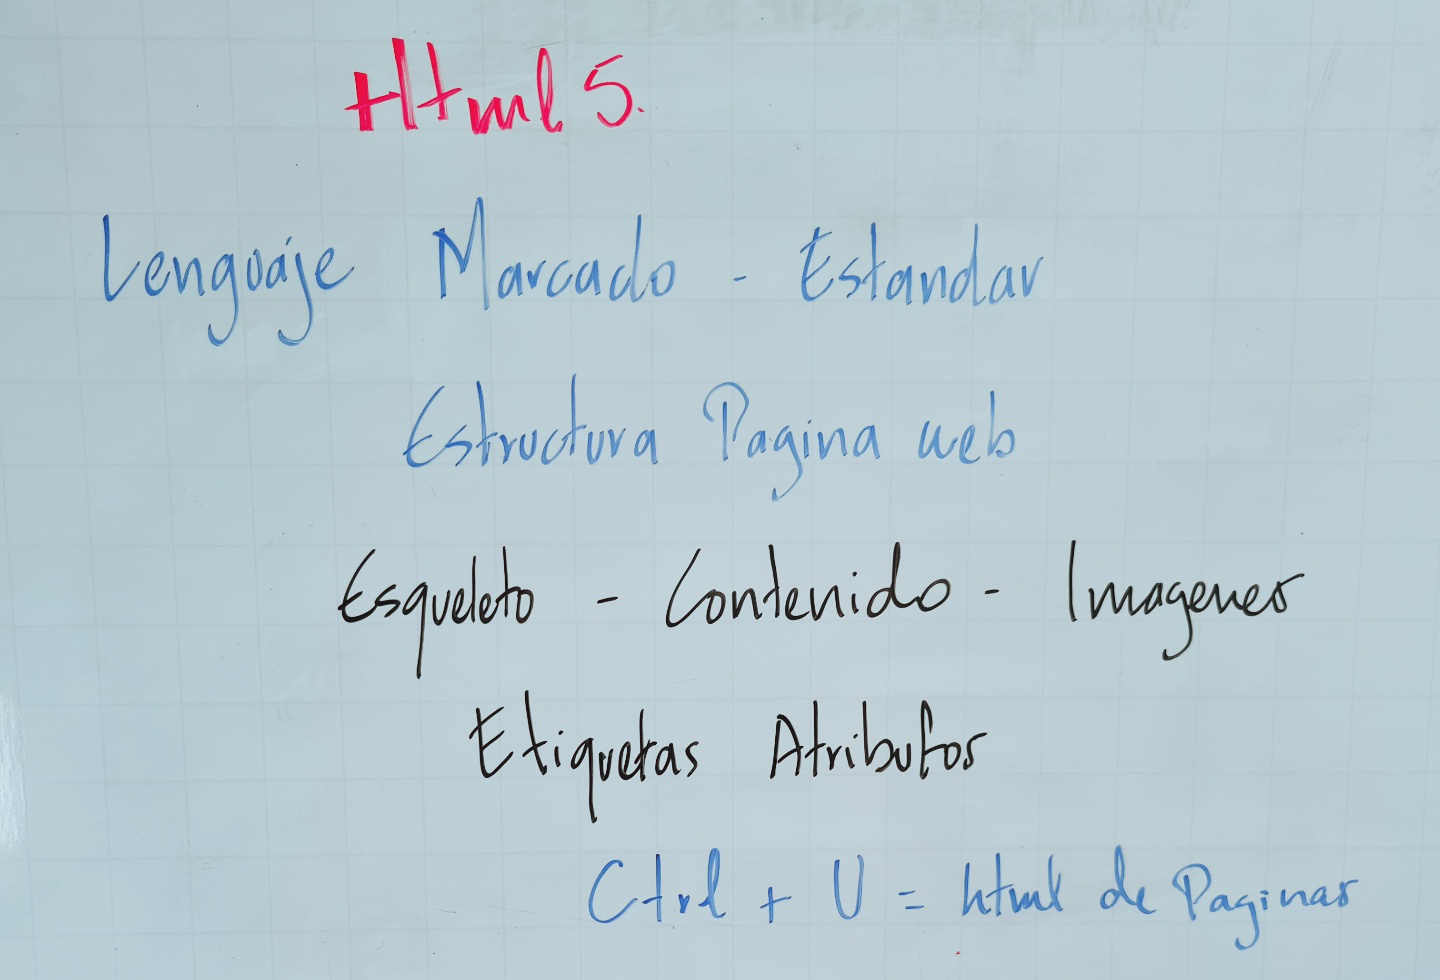 Html 5.
Lenguaje Marcado - Estandar
Estructura Pagina web
Esqueleto - Contenido - Imagenes
Etiquetas Atributos
Ctrl + U = html de Paginas